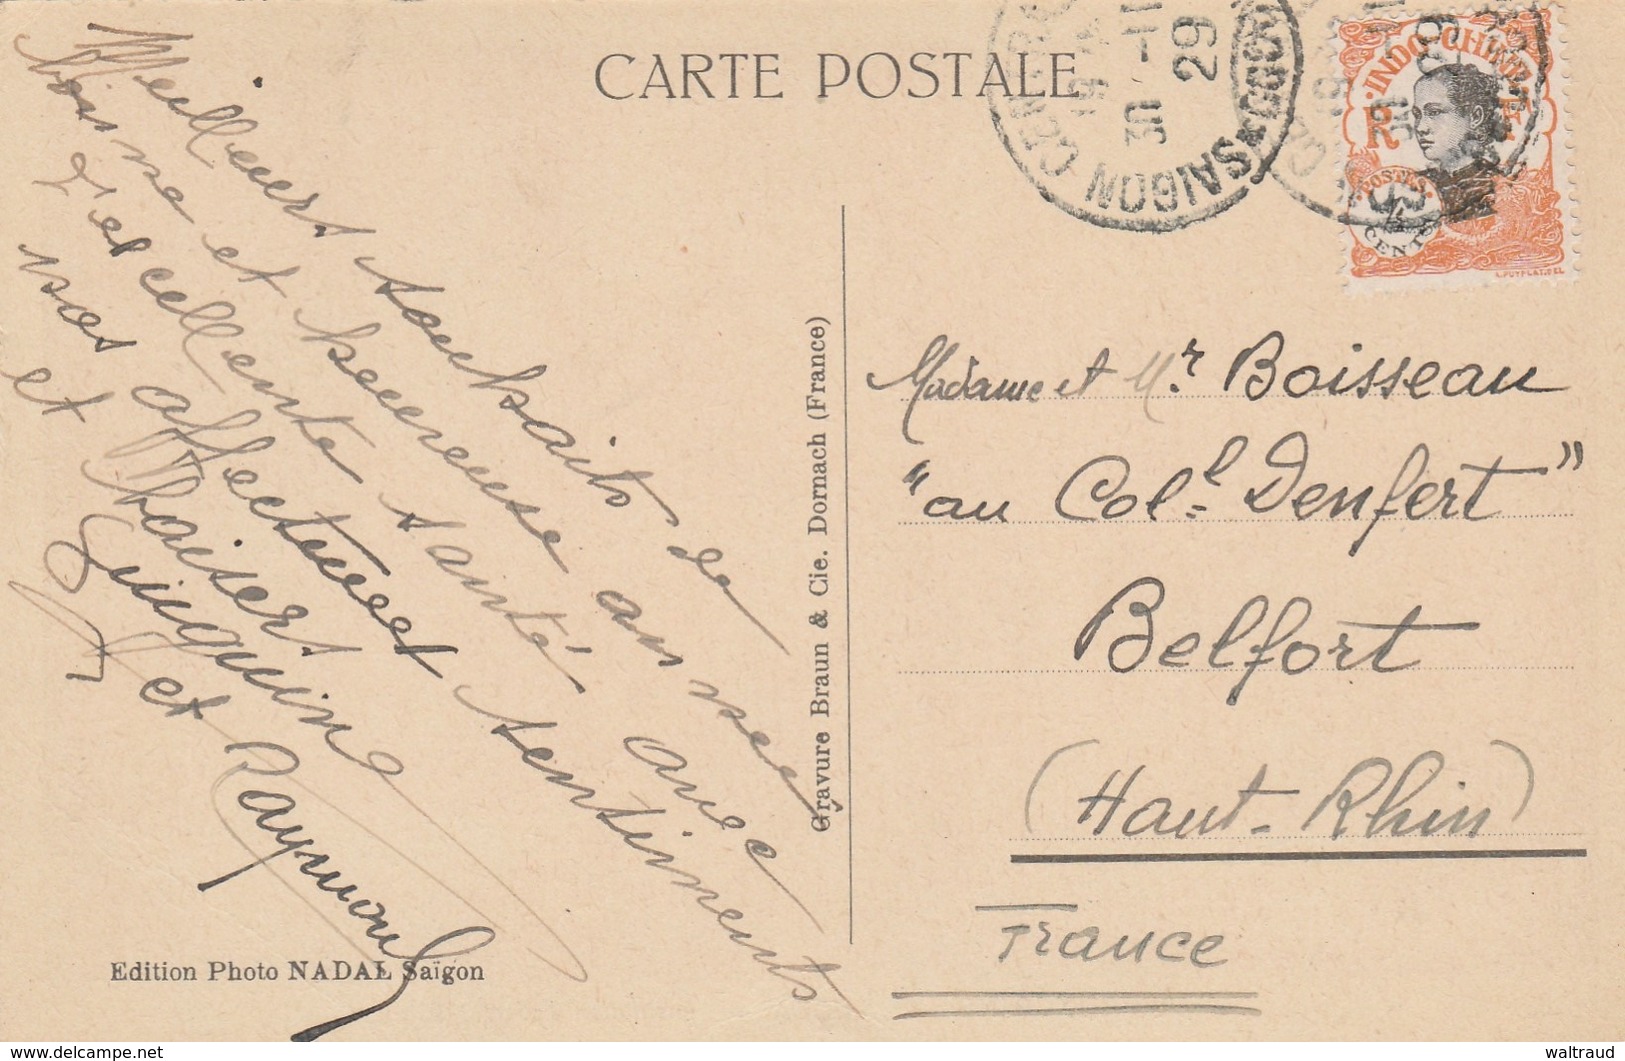 CARTE POSTALE
SAIGON
30 -11
29
INDO-CHINE
R F
POSTES
4
CENTS
L.PUYPLAT.DEL
Meilleurs souhaits de
bonne et heureuse année
d'excellente santé avec
nos affectueux sentiments
et baisers
et Raymond
Edition Photo NADAL Saïgon
Gravure Braun & Cie. Dornach (France)
Madame et Mr Boisseau
"au Col.l Denfert"
Belfort
(Haut-Rhin)
France
http://www.delcampe.net
waltraud